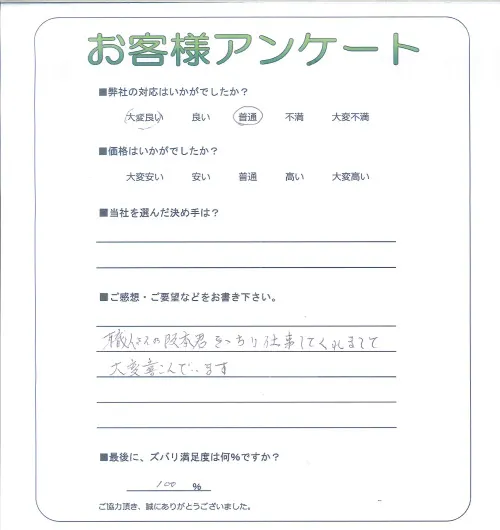 お客様アンケート
■弊社の対応はいかがでしたか？
大変良い 良い 普通 不満 大変不満
■価格はいかがでしたか？
大変安い 安い 普通 高い 大変高い
■当社を選んだ決め手は？
■ご感想・ご要望などをお書き下さい。
職人さんの阪本君きっちり仕事してくれまして
大変喜こんでいます
■最後に、ズバリ満足度は何%ですか？
100 %
ご協力頂き、誠にありがとうございました。